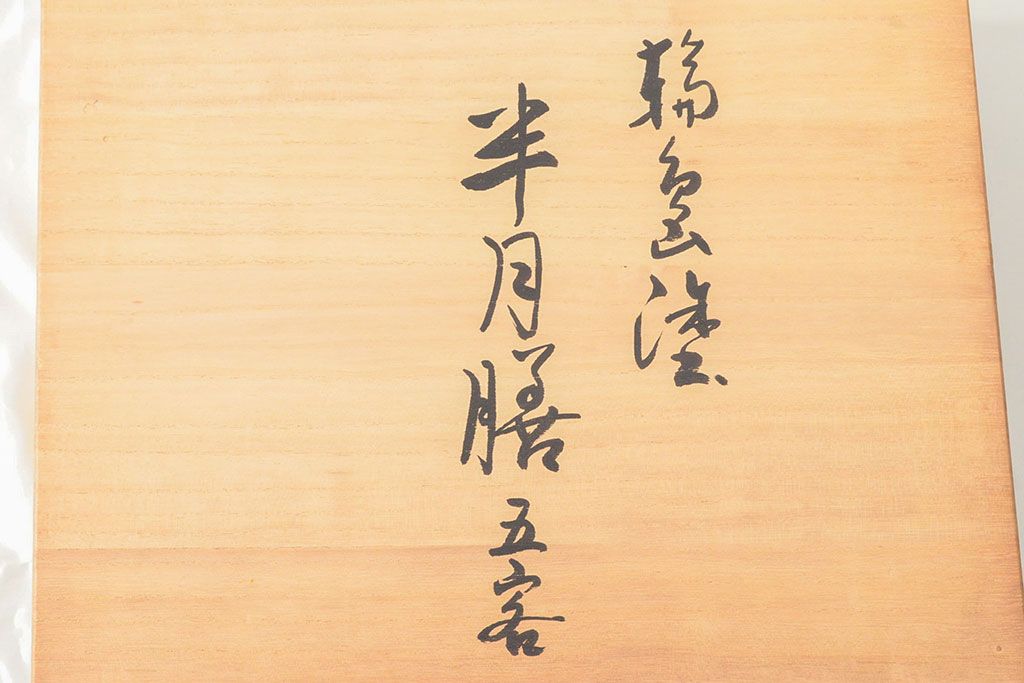 輪島塗
半月膳 五客